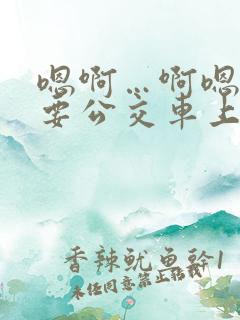 嗯啊…啊嗯
要公交車上
香辣魷魚幹1
未经同意禁止转载